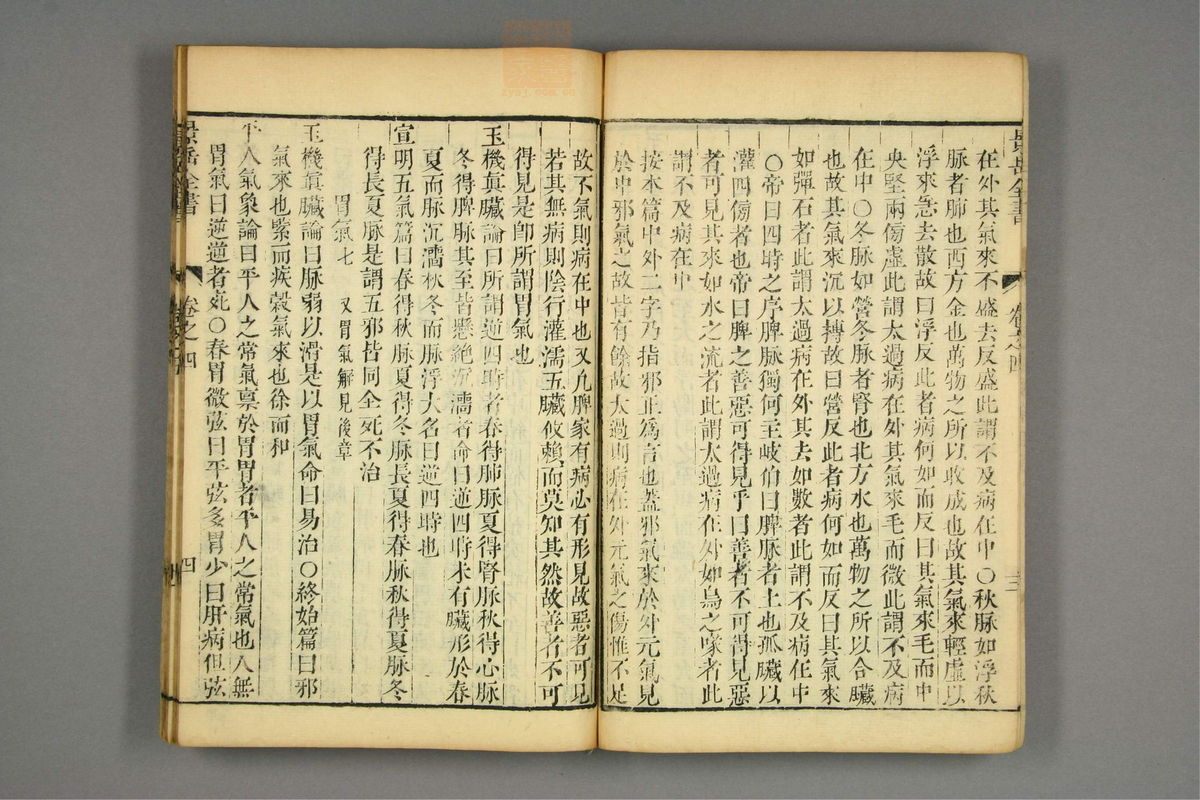 在外其氣來不盛去反盛此謂不及病在中〇秋脉如浮秋
脉者肺也西方金也萬物之所以收成也故其氣來輕虛以
浮來急去散故曰浮反此者病何如而反曰其氣來毛而中
央堅兩傍虛此謂太過病在外其氣來毛而微此謂不及病
在中〇冬脉如營冬脉者腎也北方水也萬物之所以合臟
也故其氣來沉以摶故曰營反此者病何如而反曰其氣來
如彈石者此謂太過病在外其去如數者此謂不及病在中
〇帝曰四時之序脾脉獨何主岐伯曰脾脉者土也孤臟以
灌四傍者也帝曰脾之善惡可得見乎曰善者不可得見惡
者可見其來如水之流者此謂太過病在外如鳥之喙者此
謂不及病在中
按本篇中外二字乃指邪正為言也蓋邪氣來於外元氣見
於中邪氣之故皆有餘故太過則病在外元氣之傷惟不足
故不氣則病在中也又凡脾家有病必有形見故惡者可見
若其無病則陰行灌濡五臟攸賴而莫知其然故善者不可
得見是卽所謂胃氣也
玉機眞臟論曰所謂逆四時者春得肺脉夏得腎脉秋得心脉
冬得脾脉其至皆懸絶沉濇者命曰逆四時未有臟形於春
夏而脉沉濇秋冬而脉浮大名曰逆四時也
宣明五氣篇曰春得秋脉夏得冬脉長夏得春脉秋得夏脉冬
得長夏脉是謂五邪皆同命死不治
胃氣七 又胃氣解見後章
玉機眞臟論曰脉弱以滑是以胃氣命曰易治〇終始篇曰邪
氣來也緊而疾穀氣來也徐而和
平人氣象論曰平人之常氣禀於胃胃者平人之常氣也人無
胃氣曰逆逆者死〇春胃微弦曰平弦多胃少曰肝病但弦
景岳全書
卷之四
四